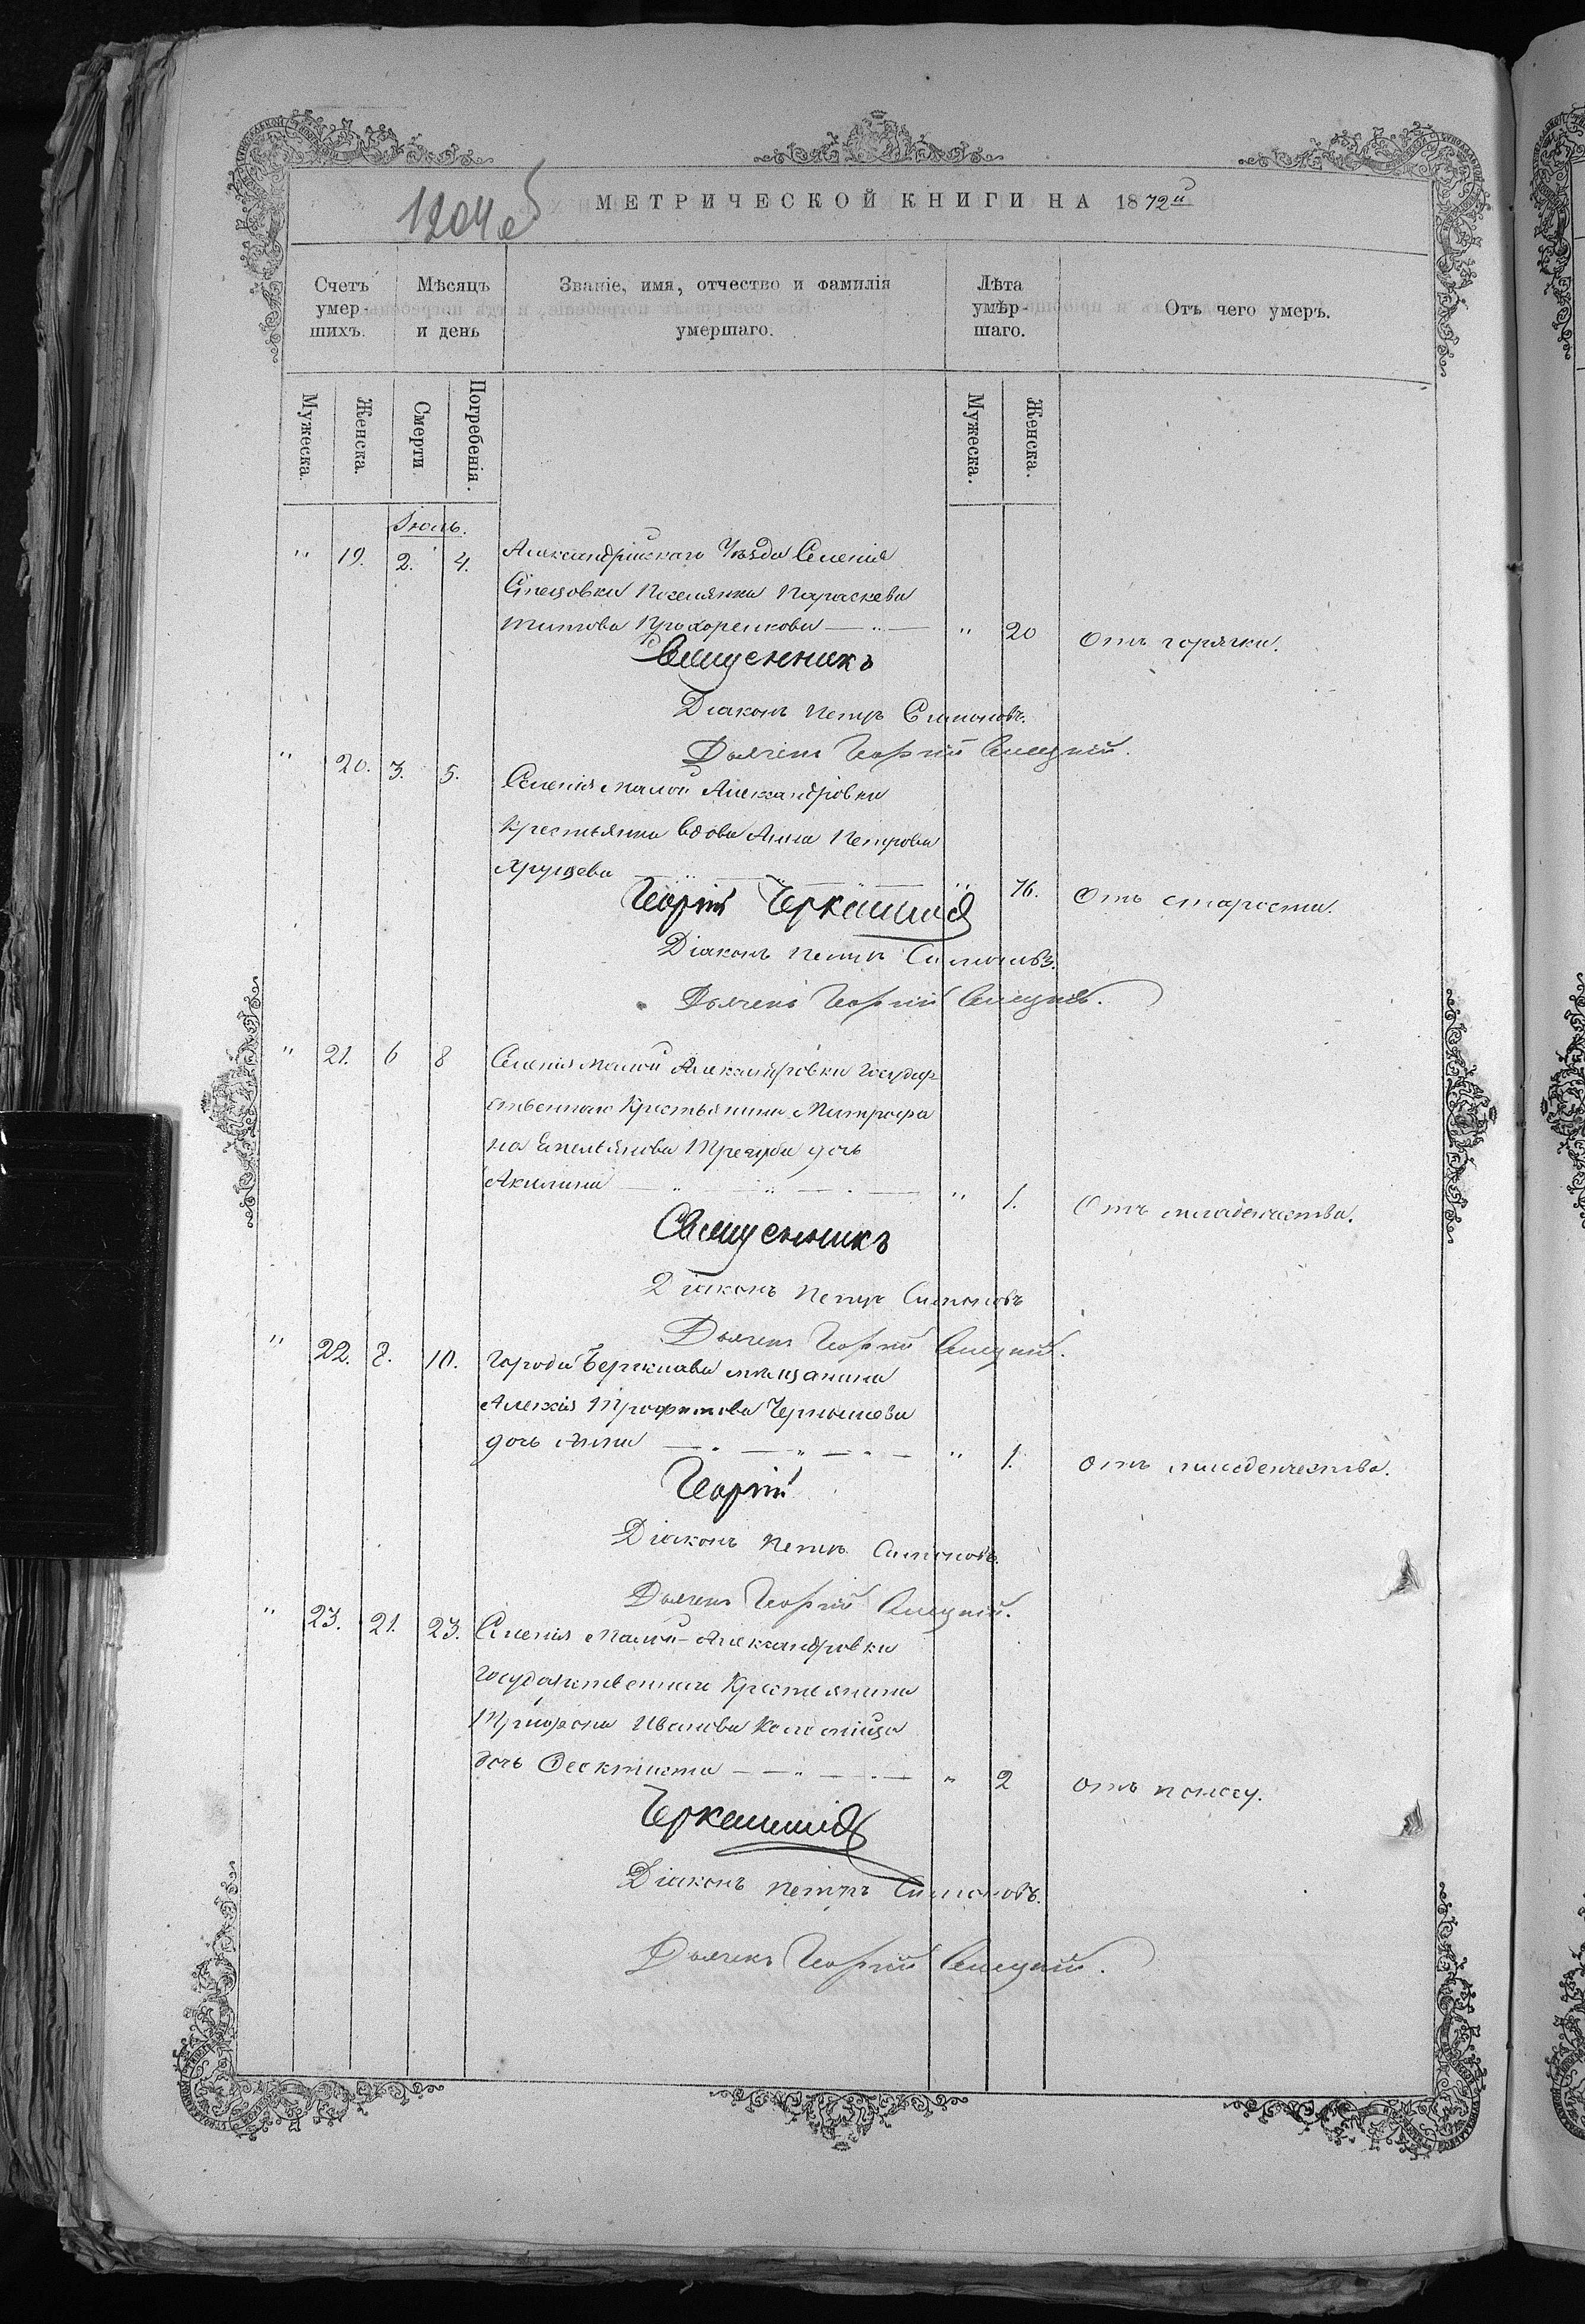 1204 об
МЕТРИЧЕСКОЙ КНИГИ НА 1872й
Счетъ умер-шихъ.
Мѣсяцъ и день
Званіе, имя, отчество и фамилія умершаго.
Лѣта умѣр-шаго.
Отъ чего умеръ.
Мужеска.
Женска.
Смерти
Погребенія.
Мужеска.
Женска.
Іюль.
" 19. 2. 4. Александрійскаго Уѣзда Селенія
Поселянка Параскева
Титова Прохоренкова " 20 Отъ горячки.
Священникъ
Діаконъ Петръ Симоновъ.
Дьячекъ Георгій
" 20. 3. 5. Селенія Малой Александровки
Крестьянка вдова Анна Петрова
Хрущева " 76. Отъ старости.
Георгій
Діаконъ Петръ Симоновъ.
Дьячекъ Георгій
" 21. 6 8 Селенія Малой Александровки Государ
ственнаго Крестьянина Митрофа
на Емельянова дочь
Акилина " 1. Отъ младенчества.
Священникъ
Діаконъ Петръ Симоновъ
Дьячекъ Георгій
" 22. 8. 10. Города Берислава мѣщанина
Алексія Трофимова Чернышева
дочь Анна " 1. Отъ младенчества.
Георгій
Діаконъ Петръ Симоновъ.
Дьячекъ Георгій
" 23. 21. 23. Селенія Малой-Александровки
Государственнаго Крестьянина
Трифона Иванова Коломійца
дочь Феоктиста " 2 Отъ поносу.
Діаконъ Петръ Симоновъ.
Дьячекъ Георгій